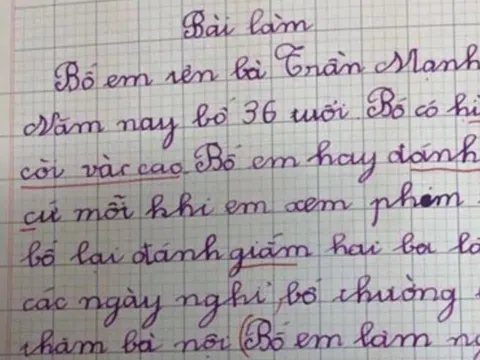 Bài làm
Bố em tên bà Trần Mạnh
Năm nay bố 36 tuổi. Bố có hì
còi vàc cao. Bố em hay đánh
cú mỗi khi em xem phim
bố lại đánh giắm hai ba lầ
các ngày nghỉ, bố thường
thăm bà nội (Bố em làm ng